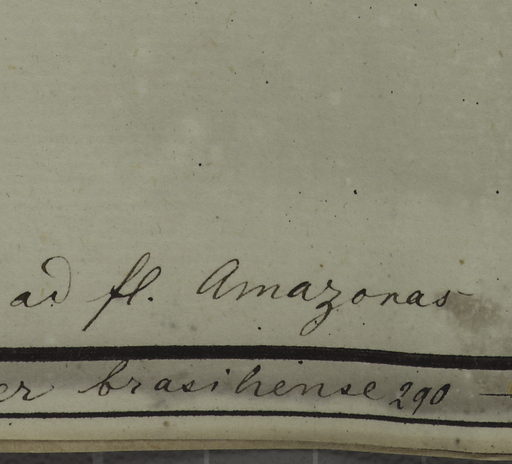 ad fl. Amazonas
er brasiliense 290 —